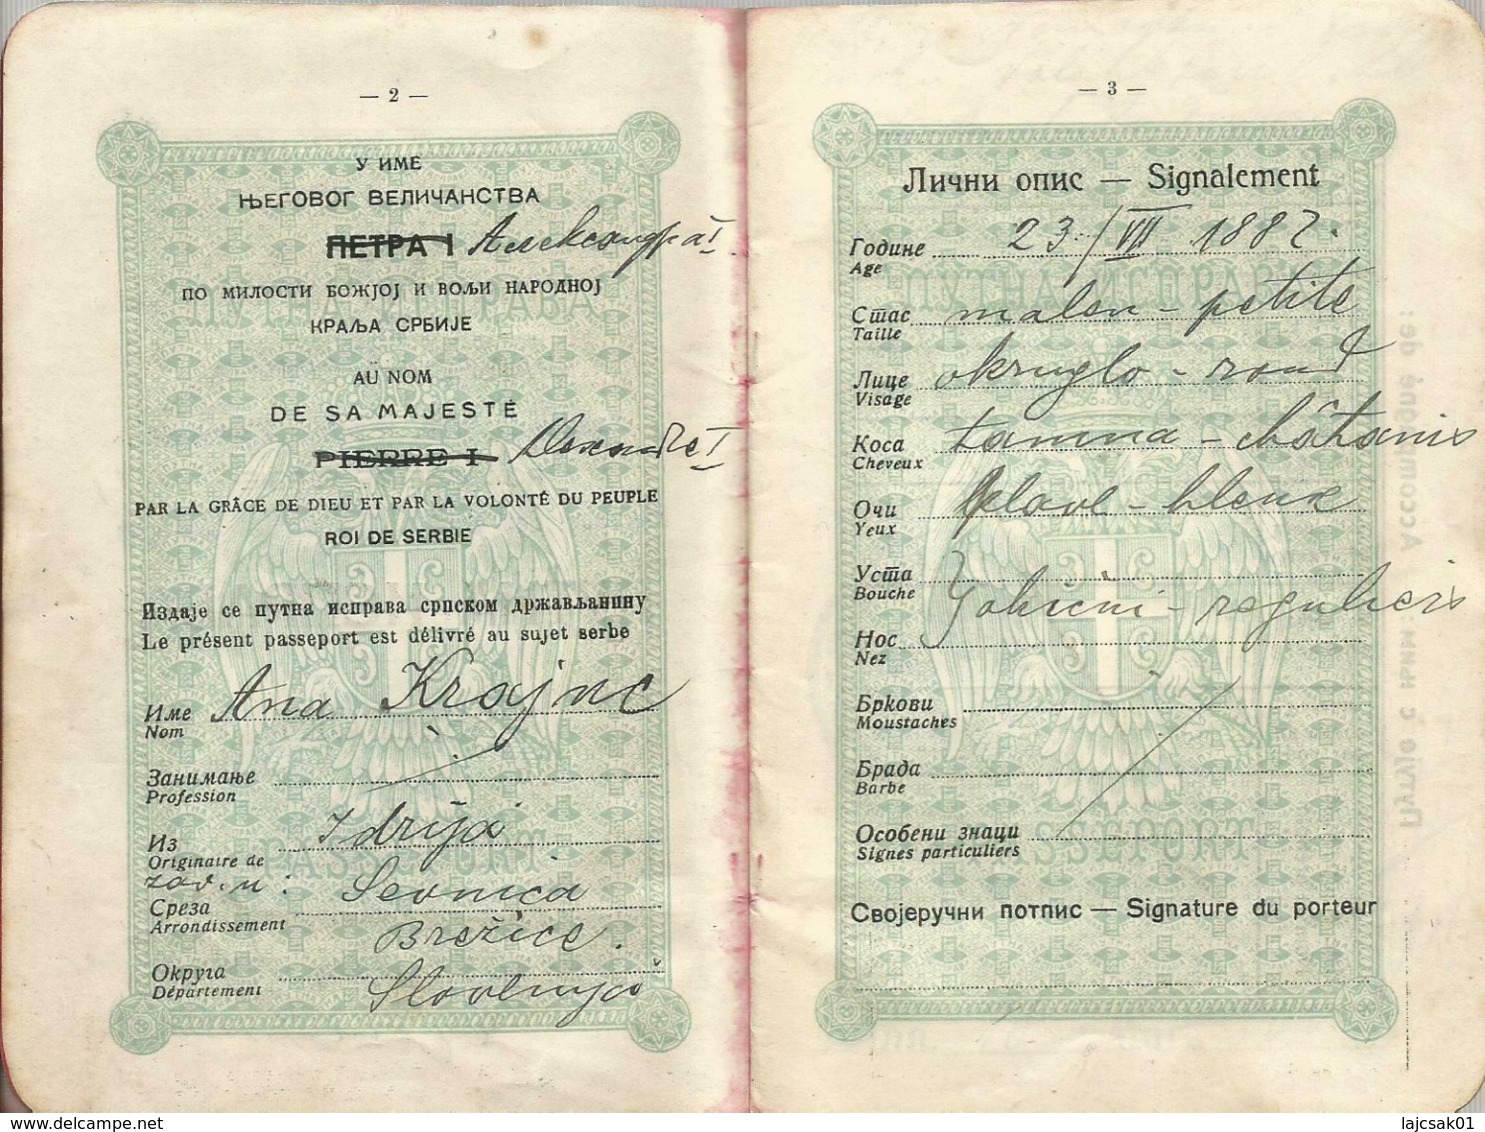 — 2 —
У ИМЕ
ЊЕГОВОГ ВЕЛИЧАНСТВА
ПЕТРА I Александра I
ПО МИЛОСТИ БОЖЈОЈ И ВОЉИ НАРОДНОЈ
КРАЉА СРБИЈЕ
AU NOM
DE SA MAJESTÉ
PIERRE I Alexandre I
PAR LA GRÂCE DE DIEU ET PAR LA VOLONTÉ DU PEUPLE
ROI DE SERBIE
Издаје се путна исправа српском држављанину
Le présent passeport est délivré au sujet serbe
Име Ana Krajnc
Nom
Занимање
Profession
Из Idrija
Originaire de
zav. u: Sevnica
Среза
Arrondissement
Brežice.
Округа
Département Slovenija
— 3 —
Лични опис — Signalement
Године 23./VII 1882.
Age
Стас malen - petite
Taille
Лице okruglo - rond
Visage
Коса tamna - châtanis
Cheveux
Очи plave - bleux
Yeux
Уста
Bouche
obični - reguliers
Нос
Nez
Бркови
Moustaches
Брада
Barbe
Особени знаци
Signes particuliers
Својеручни потпис — Signature du porteur
ПУТНА ИСПРАВА
PASSEPORT
Путује с њим:
Accompagné de:
lajcsak01